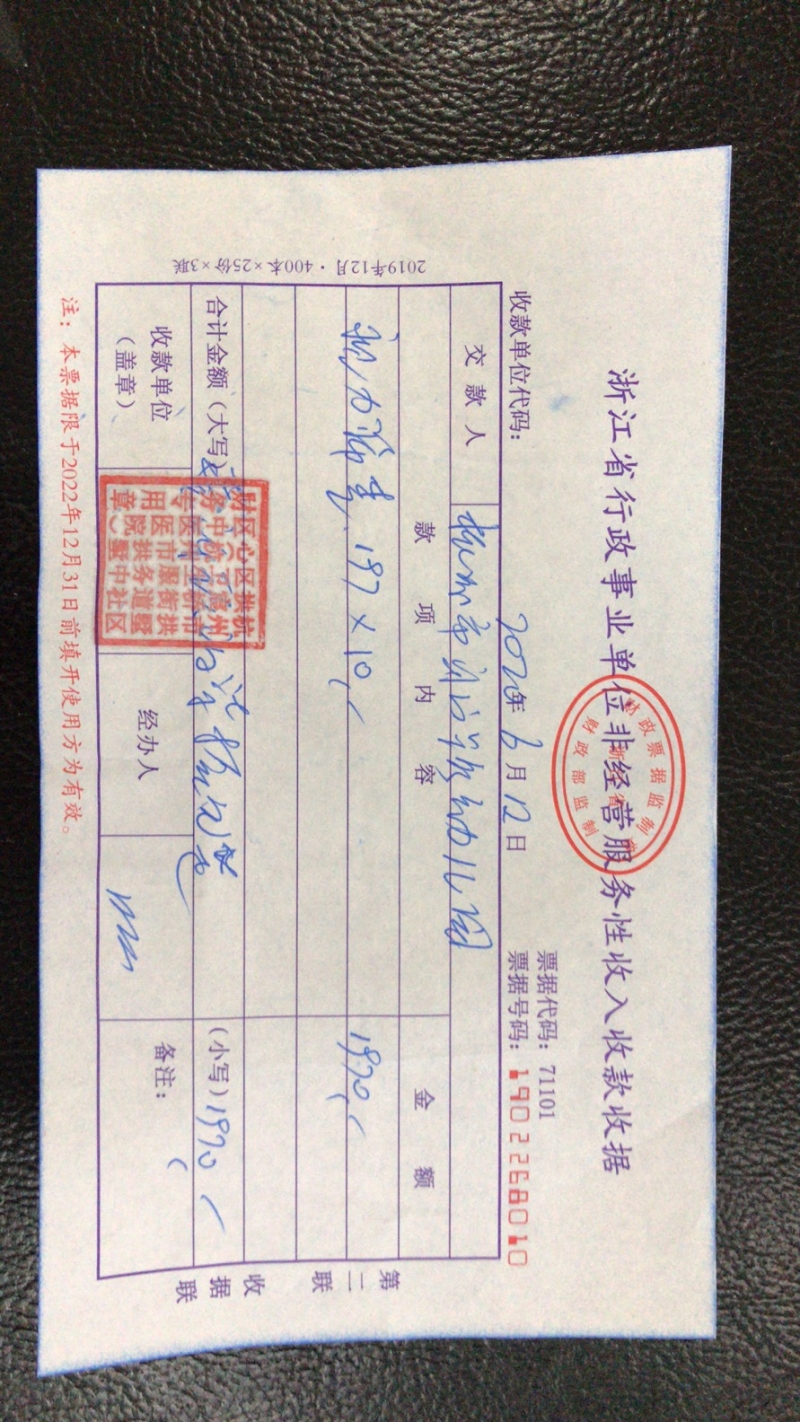 浙江省行政事业单位非经营服务性收入收款收据
财政票据监制
财政部监制
票据代码：71101
收款单位代码： 2020年 6月 12日 票据号码：1902268010
交款人 杭州市 幼儿园
款项内容 金额
197×10 1970
合计金额（大写） （小写）1970
收款单位（盖章） 经办人 备注：
注：本票据限于2022年12月31日前填开使用方为有效。
2019年12月·400本×25份×3联
第二联 收据联